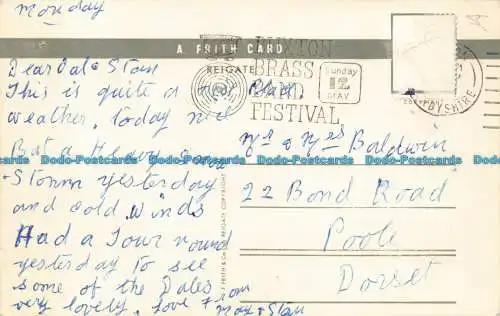 Monday
A FRITH CARD
REIGATE
BUXTON
BRASS
BAND
FESTIVAL
Sunday
12
MAY
BYSHIRE
Dear Val & Stan
This is quite a nice place
weather, Today nice
But a Heavy
Storm yesterday
and cold Winds
Had a Tour round
yesterday To see
some of the Dales
very lovely. Love From
May & Stan
Mr & Mrs Baldwin
22 Bond Road
Poole
Dorset
F. FRITH & Co. REIGATE COPYRIGHT
Dodo-Postcards Dodo-Postcards Dodo-Postcards Dodo-Postcards Dodo-Postcards